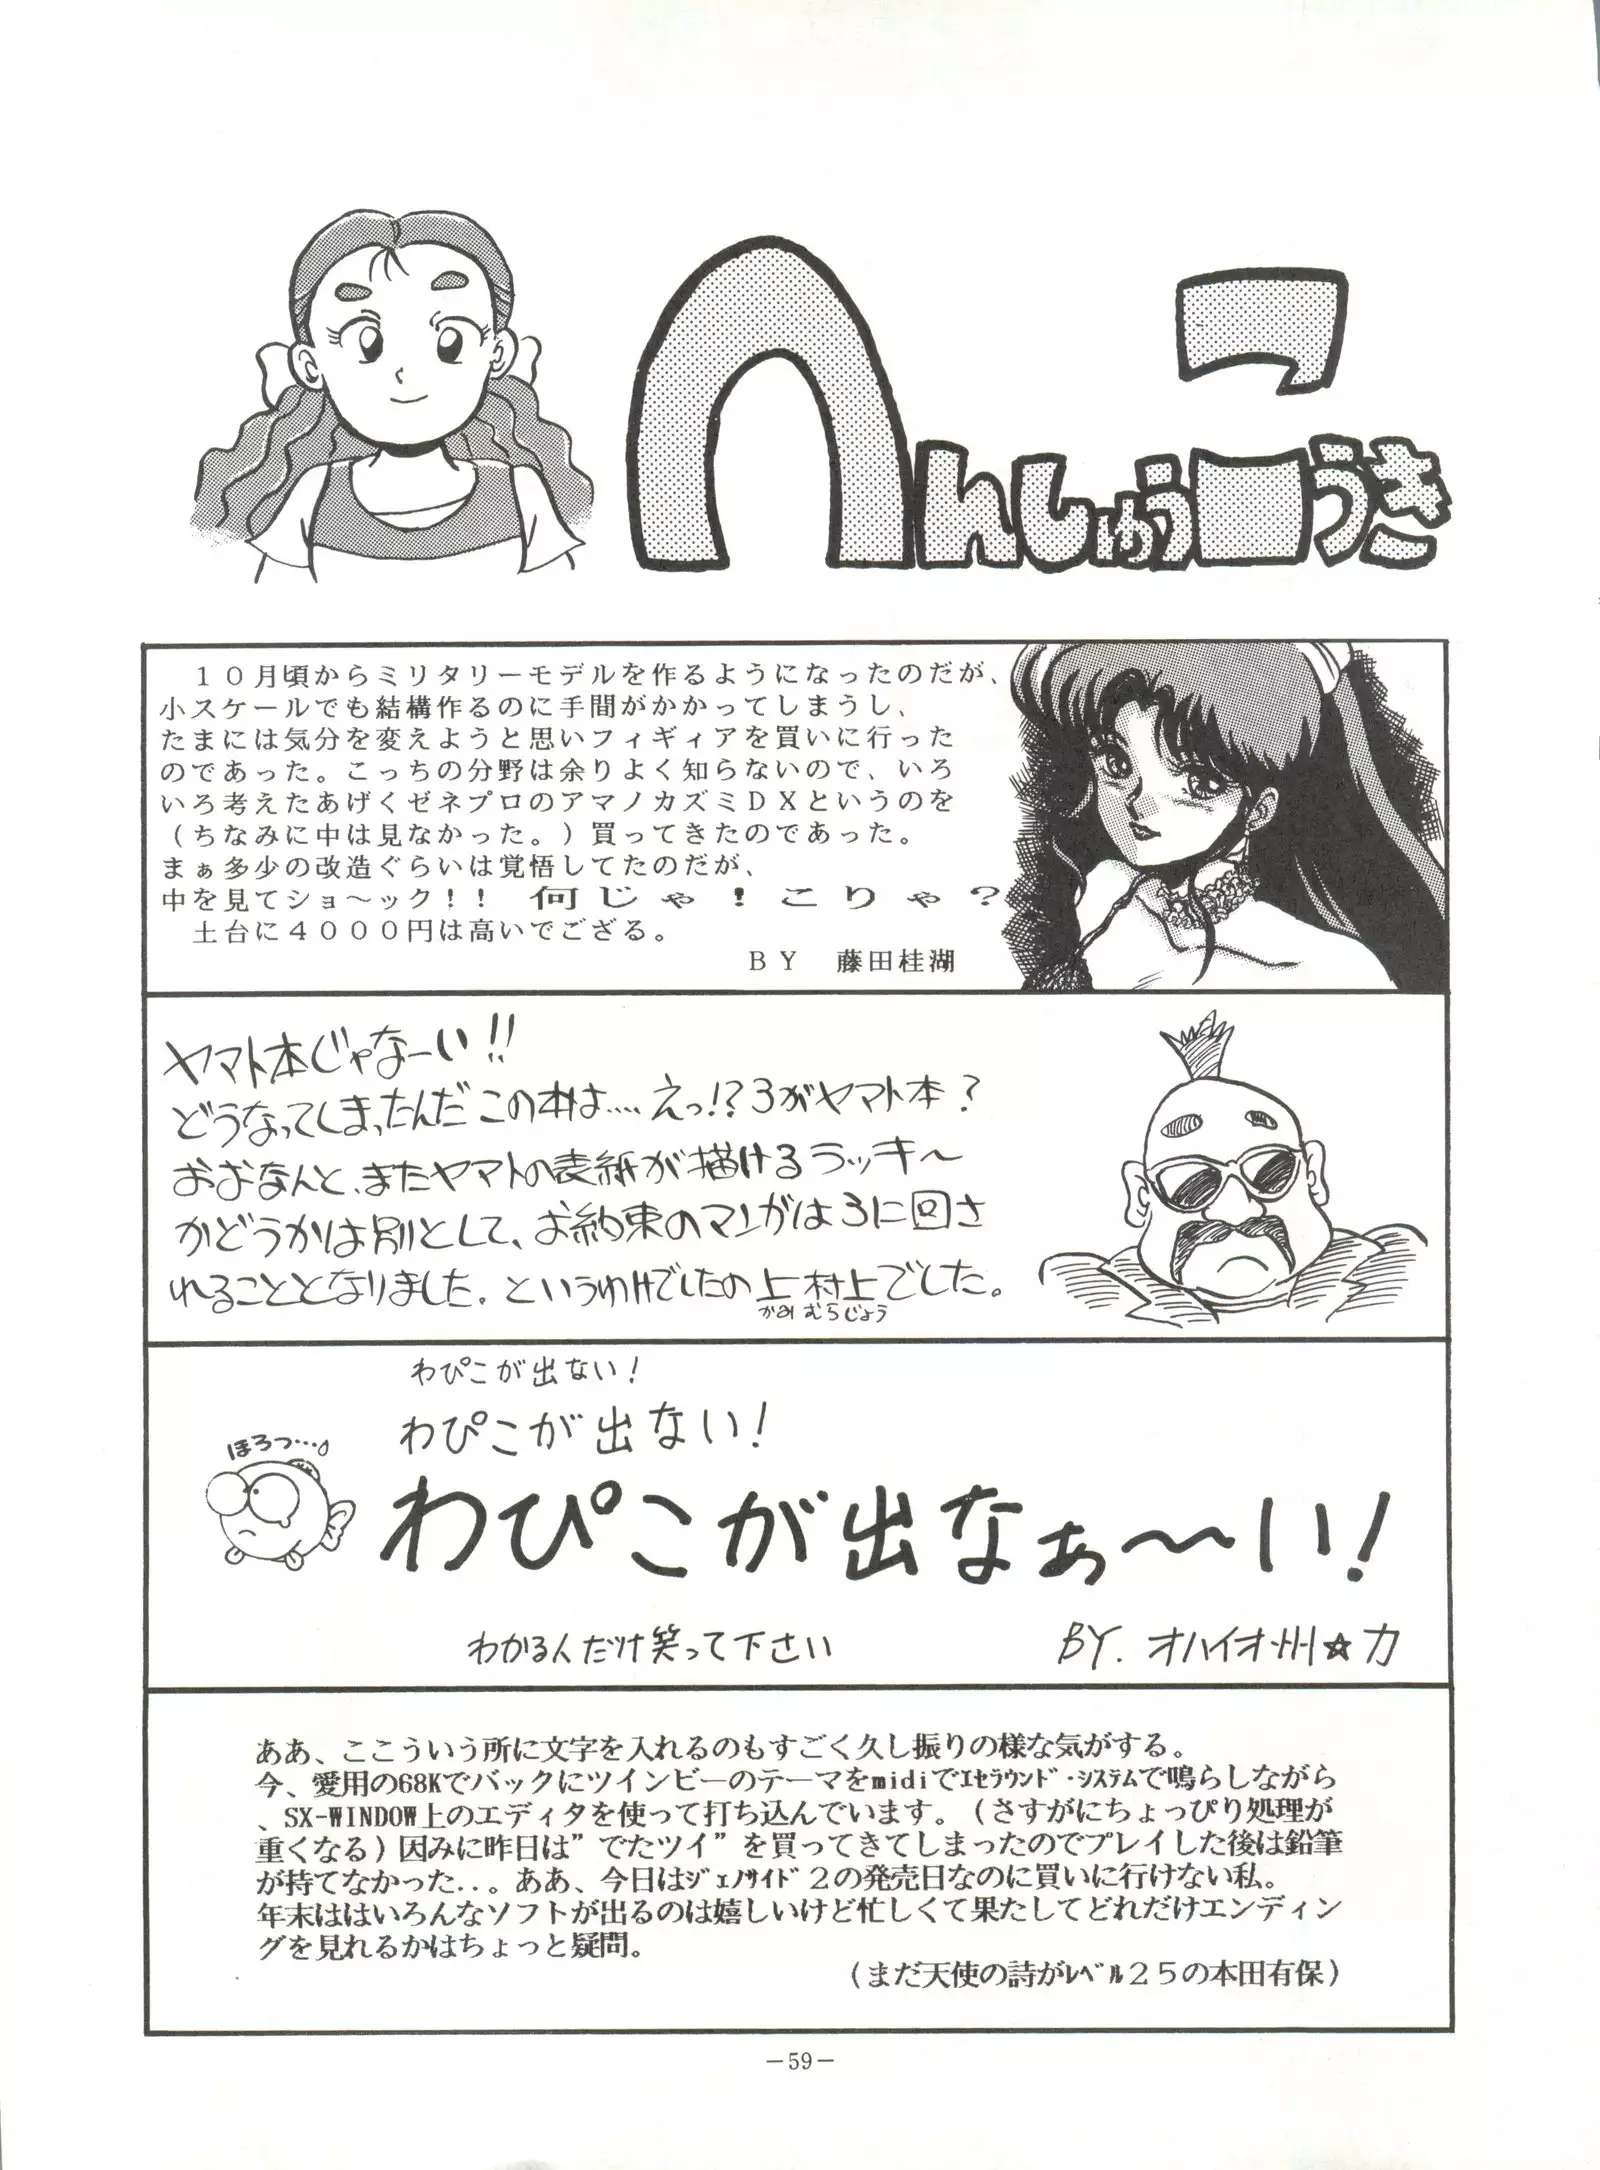 へんしゅうこうき
１０月頃からミリタリーモデルを作るようになったのだが、
小スケールでも結構作るのに手間がかかってしまうし、
たまには気分を変えようと思いフィギィアを買いに行った
のであった。こっちの分野は余りよく知らないので、いろ
いろ考えたあげくゼネプロのアマノカズミＤＸというのを
（ちなみに中は見なかった。）買ってきたのであった。
まぁ多少の改造ぐらいは覚悟してたのだが、
中を見てショ〜ック！！ 何じゃ！こりゃ？
土台に４０００円は高いでござる。
ＢＹ　藤田桂湖
ヤマト本じゃなーい!!
どうなってしまったんだこの本は....えっ!?3がヤマト本?
おおなんと、またヤマトの表紙が描けるラッキ〜
かどうかは別として、お約束のマンガは3に回さ
れることとなりました。というわけでしたの上村上でした。
かみむらじょう
わぴこが出ない!
わぴこが出ない!
ほろっ…
わぴこが出なぁ〜〜い!
わかる人だけ笑って下さい
BY. オハイオ州☆力
ああ、ここういう所に文字を入れるのもすごく久し振りの様な気がする。
今、愛用の68Kでバックにツインビーのテーマをmidiでｴｾﾗｳﾝﾄﾞ･ｼｽﾃﾑで鳴らしながら
、SX-WINDOW上のエディタを使って打ち込んでいます。（さすがにちょっぴり処理が
重くなる）因みに昨日は”でたツイ”を買ってきてしまったのでプレイした後は鉛筆
が持てなかった..。ああ、今日はｼﾞｪﾉｻｲﾄﾞ２の発売日なのに買いに行けない私。
年末ははいろんなソフトが出るのは嬉しいけど忙しくて果たしてどれだけエンディン
グを見れるかはちょっと疑問。
（まだ天使の詩がﾚﾍﾞﾙ２５の本田有保）
－59－